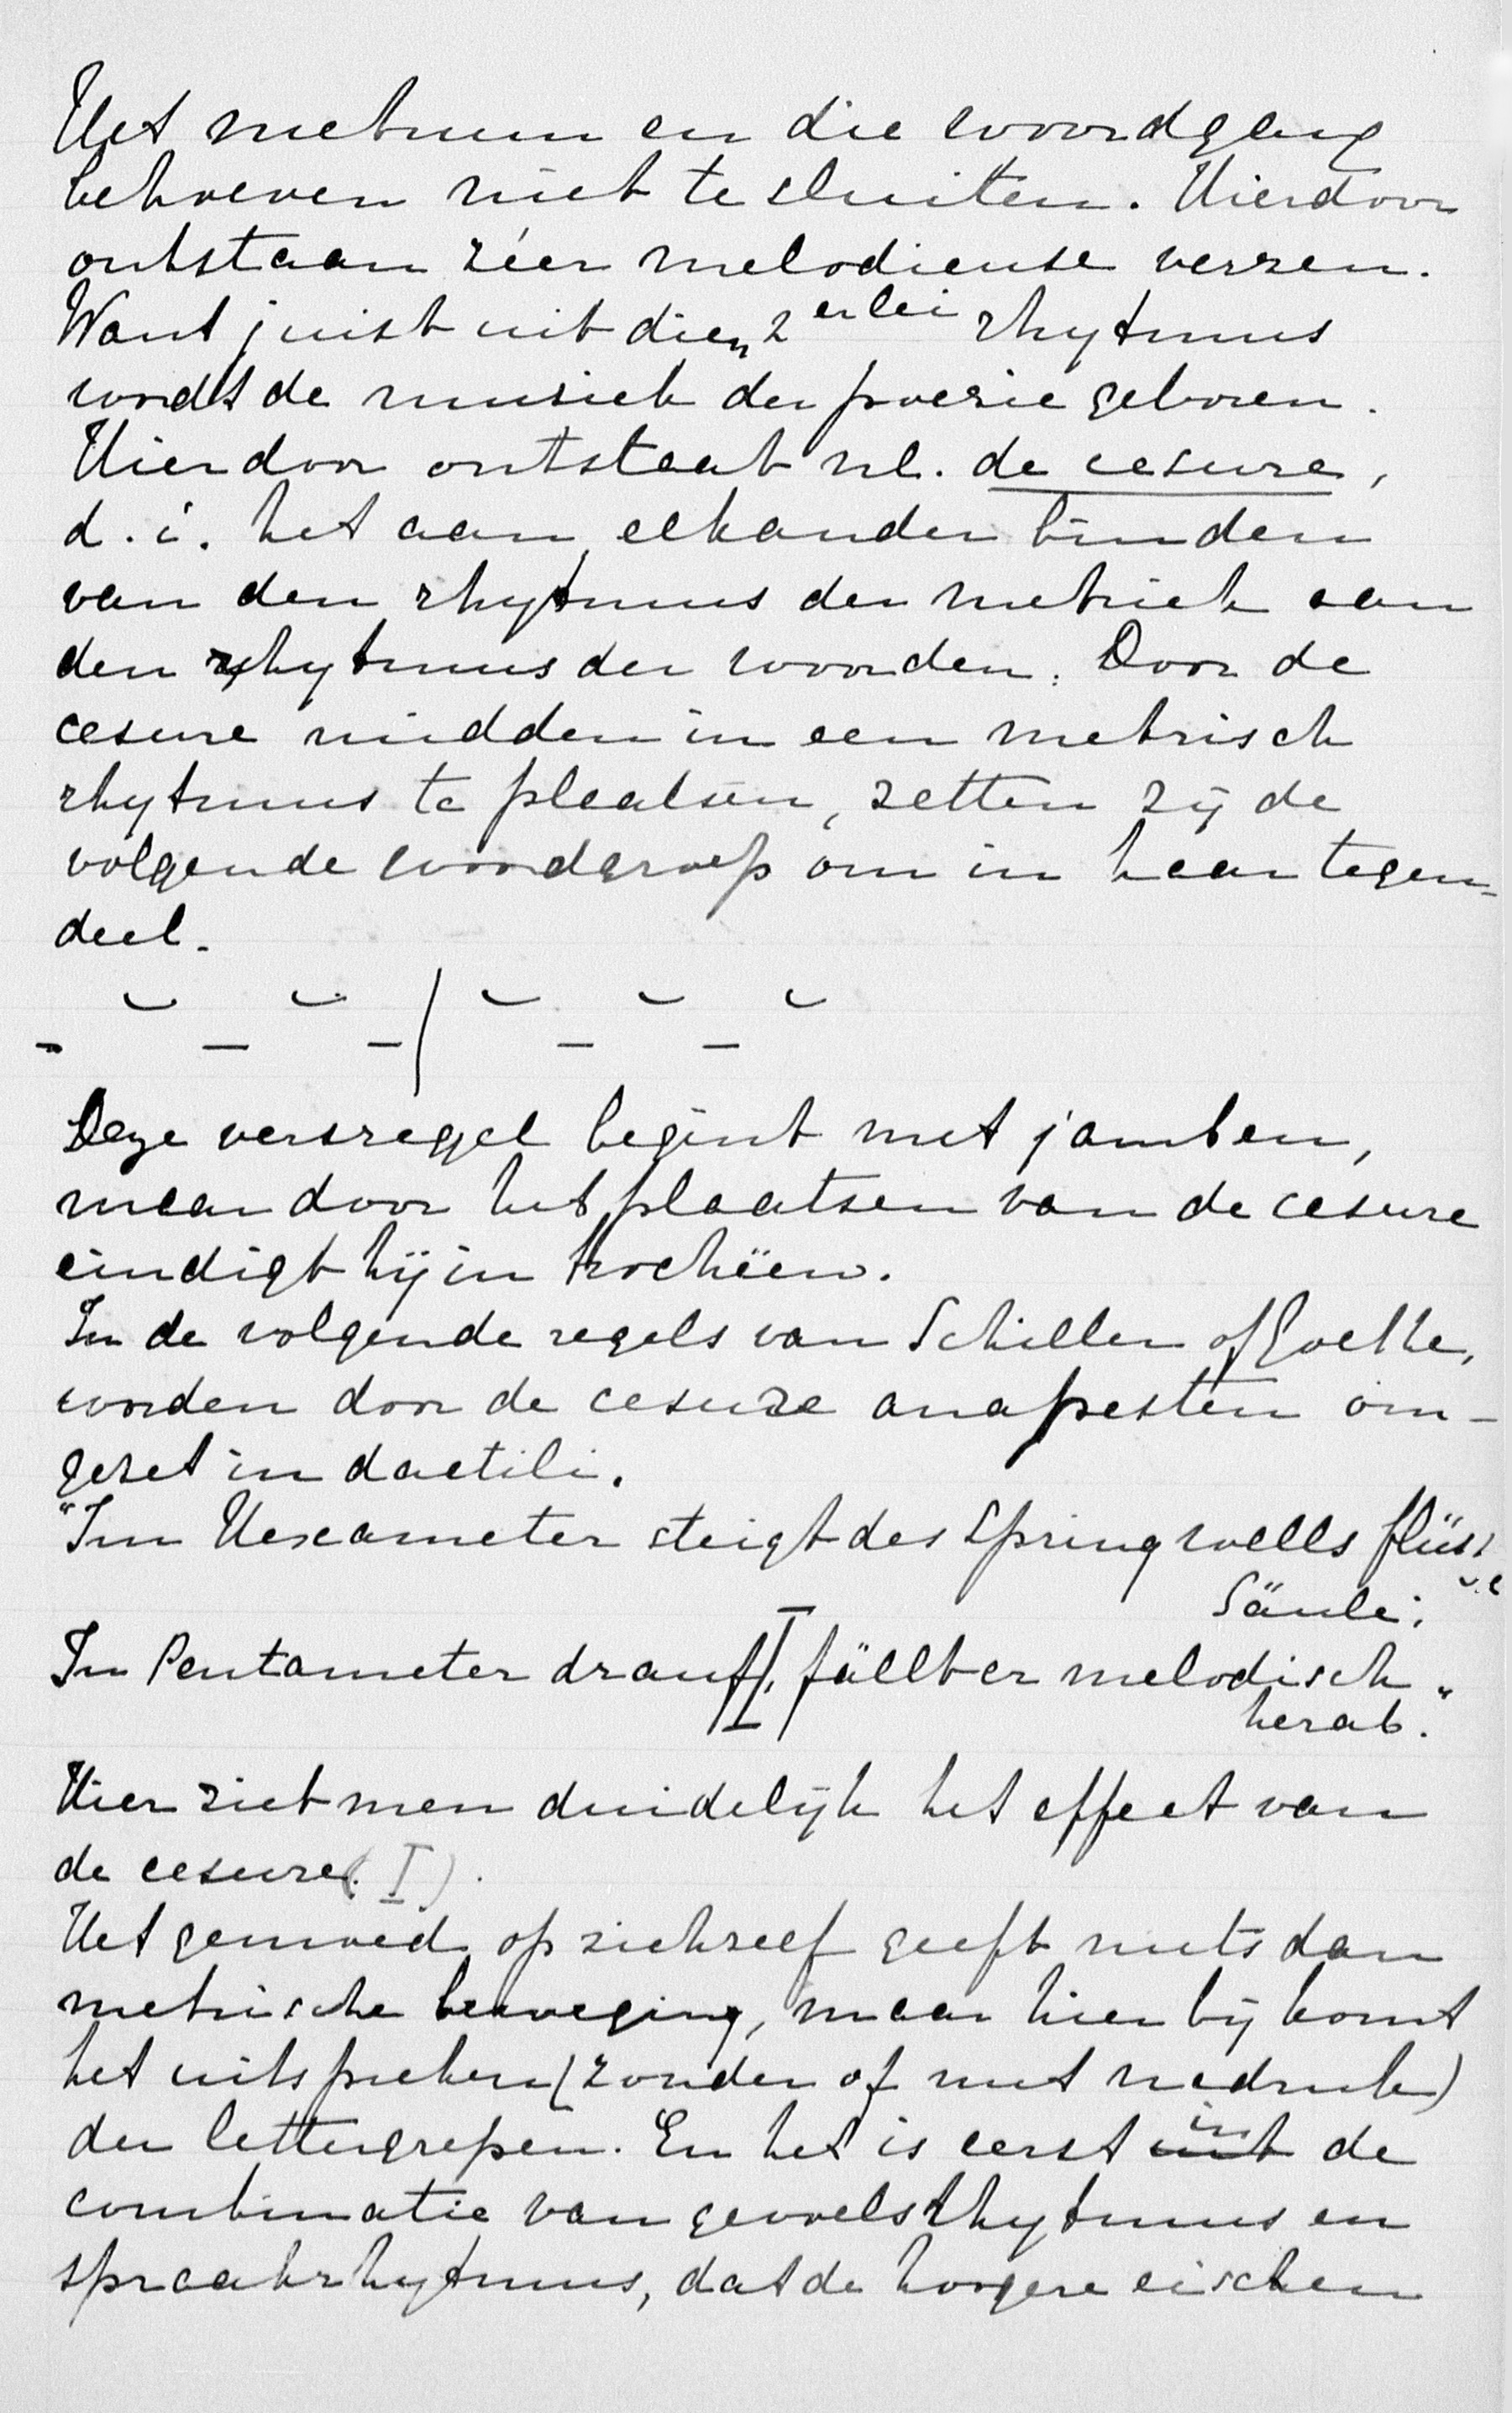 Het metrum en die woordgang
behoeven niet te sluiten. Hierdoor
ontstaan zéér melodieuse verzen.
Want juist uit die „2 erlei rhytmus
wordt de musiek der poezie geboren.
Hierdoor ontstaat nl. de cesure,
d.i. het aan elkander binden
van den rhytmus der metriek aan
den rhytmus der woorden. Door de
cesure midden in een metrisch
rhytmus te plaatsen, zetten zij de
volgende woordgroep om in haar tegen-
deel.
- ˘ - ˘ - / ˘ - ˘ - ˘
Deze versregel begint met jamben,
maar door het plaatsen van de cesure
eindigt hij in trocheën.
In de volgende regels van Schiller of Goethe,
worden door de cesure anapesten om-
gezet in dactili.
"Im Hexameter steigt des Springwells flüss
Säule;
In Pentameter drauf I, fällt er melodisch
herab."
Hier ziet men duidelijk het effect van
de cesure (I).
Het gemoed op zichzelf geeft niets dan
metrische beweging, maar hier bij komt
het uitspreken (zonder of met nadruk)
der lettergrepen. En het is eerst in de
combinatie van gevoelsrhytmus en
spraakrhytmus, dat de hoogere eischen